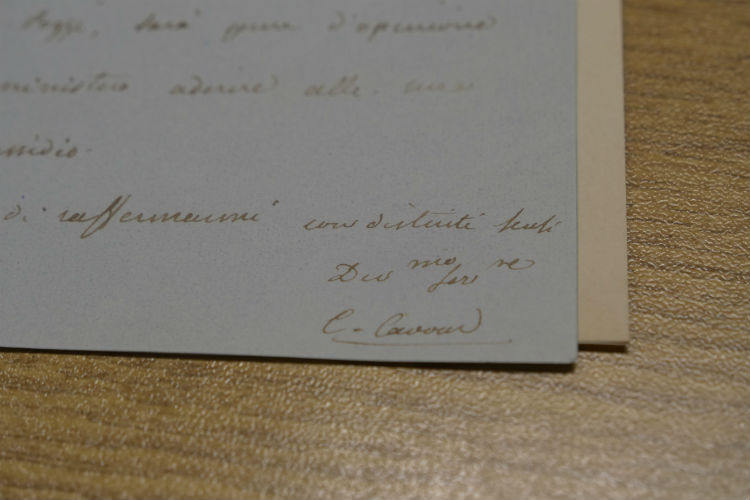 Poggi, sarà pure d'opinione
ministero aderire alle sue
ssidio.
di raffermarmi con distinti sensi
Dev mo ser re
C. Cavour